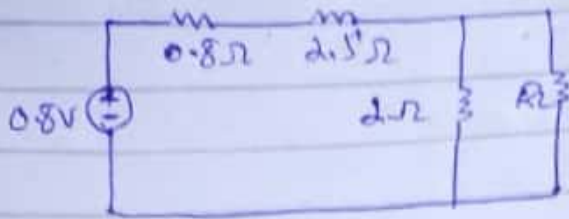 0.8Ω 2.5Ω
0.8V 2Ω